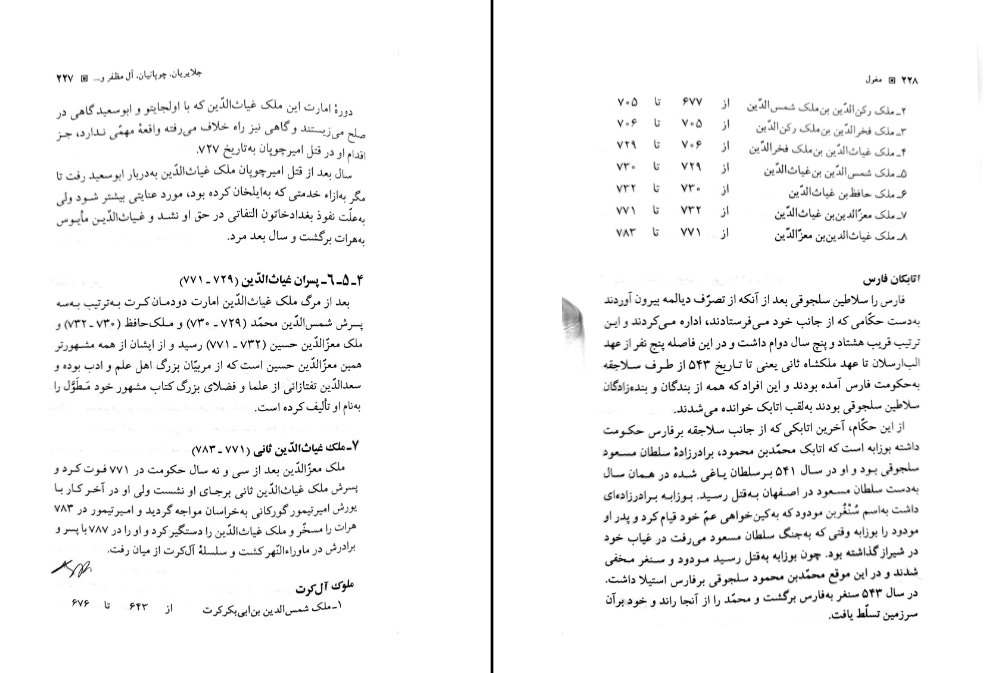 جلایریان، چوپانیان، آل مظفر و... ▣ ۲۲۷
دورهٔ امارت این ملک غیاث‌الدّین که با اولجایتو و ابوسعید گاهی در
صلح می‌زیستند و گاهی نیز راه خلاف می‌رفته واقعهٔ مهمّی ندارد، جز
اقدام او در قتل امیرچوپان به‌تاریخ ۷۲۷.
سال بعد از قتل امیرچوپان ملک غیاث‌الدّین به‌دربار ابوسعید رفت تا
مگر به‌ازاء خدمتی که به‌ایلخان کرده بود، مورد عنایتی بیشتر شود ولی
به‌علّت نفوذ بغدادخاتون التفاتی در حق او نشد و غیاث‌الدّین مأیوس
به‌هرات برگشت و سال بعد مرد.
۴ـ۵ـ۶ـ پسران غیاث‌الدّین (۷۲۹ـ۷۷۱)
بعد از مرگ ملک غیاث‌الدّین امارت دودمان کرت به‌ترتیب به‌سه
پسرش شمس‌الدّین محمّد (۷۲۹ـ۷۳۰) و ملک‌حافظ (۷۳۰ـ۷۳۲) و
ملک معزّالدّین حسین (۷۳۲ـ۷۷۱) رسید و از ایشان از همه مشهورتر
همین معزّالدّین حسین است که از مربّیان بزرگ اهل علم و ادب بوده و
سعدالدّین تفتازانی از علما و فضلای بزرگ کتاب مشهور خود مَطَوَّل را
به‌نام او تألیف کرده است.
۷ـ ملک غیاث‌الدّین ثانی (۷۷۱ـ۷۸۳)
ملک معزّالدّین بعد از سی و نه سال حکومت در ۷۷۱ فوت کرد و
پسرش ملک غیاث‌الدّین ثانی برجای او نشست ولی او در آخر کار با
یورش امیرتیمور گورکانی به‌خراسان مواجه گردید و امیرتیمور در ۷۸۳
هرات را مسخّر و ملک غیاث‌الدّین را دستگیر کرد و او را در ۷۸۷ با پسر و
برادرش در ماوراءالنّهر کشت و سلسلهٔ آل‌کرت از میان رفت.
ملوک آل‌کرت
۱ـ ملک شمس‌الدین بن‌ابی‌بکر کرت از ۶۴۳ تا ۶۷۶
۲۲۸ ▣ مغول
۲ـ ملک رکن‌الدّین بن‌ملک شمس‌الدّین از ۶۷۷ تا ۷۰۵
۳ـ ملک فخرالدّین بن‌ملک رکن‌الدّین از ۷۰۵ تا ۷۰۶
۴ـ ملک غیاث‌الدّین بن‌ملک فخرالدّین از ۷۰۶ تا ۷۲۹
۵ـ ملک شمس‌الدّین بن‌غیاث‌الدّین از ۷۲۹ تا ۷۳۰
۶ـ ملک حافظ بن‌غیاث‌الدّین از ۷۳۰ تا ۷۳۲
۷ـ ملک معزّالدین‌بن غیاث‌الدّین از ۷۳۲ تا ۷۷۱
۸ـ ملک غیاث‌الدین‌بن معزّالدّین از ۷۷۱ تا ۷۸۳
اتابکان فارس
فارس را سلاطین سلجوقی بعد از آنکه از تصرّف دیالمه بیرون آوردند
به‌دست حکّامی که از جانب خود می‌فرستادند، اداره می‌کردند و این
ترتیب قریب هشتاد و پنج سال دوام داشت و در این فاصله پنج نفر از عهد
الب‌ارسلان تا عهد ملکشاه ثانی یعنی تا تاریخ ۵۴۳ از طرف سلاجقه
به‌حکومت فارس آمده بودند و این افراد که همه از بندگان و بنده‌زادگان
سلاطین سلجوقی بودند به‌لقب اتابک خوانده می‌شدند.
از این حکّام، آخرین اتابکی که از جانب سلاجقه برفارس حکومت
داشته بوزابه است که اتابک محمّدبن محمود، برادرزادهٔ سلطان مسعود
سلجوقی بود و او در سال ۵۴۱ برسلطان یاغی شده در همان سال
به‌دست سلطان مسعود در اصفهان به‌قتل رسید. بوزابه برادرزاده‌ای
داشت به‌اسم سُنْغُربن مودود که به‌کین‌خواهی عمّ خود قیام کرد و پدر او
مودود را بوزابه وقتی که به‌جنگ سلطان مسعود می‌رفت در غیاب خود
در شیراز گذاشته بود. چون بوزابه به‌قتل رسید مودود و سنغر مخفی
شدند و در این موقع محمّدبن محمود سلجوقی برفارس استیلا داشت.
در سال ۵۴۳ سنغر به‌فارس برگشت و محمّد را از آنجا راند و خود برآن
سرزمین تسلّط یافت.